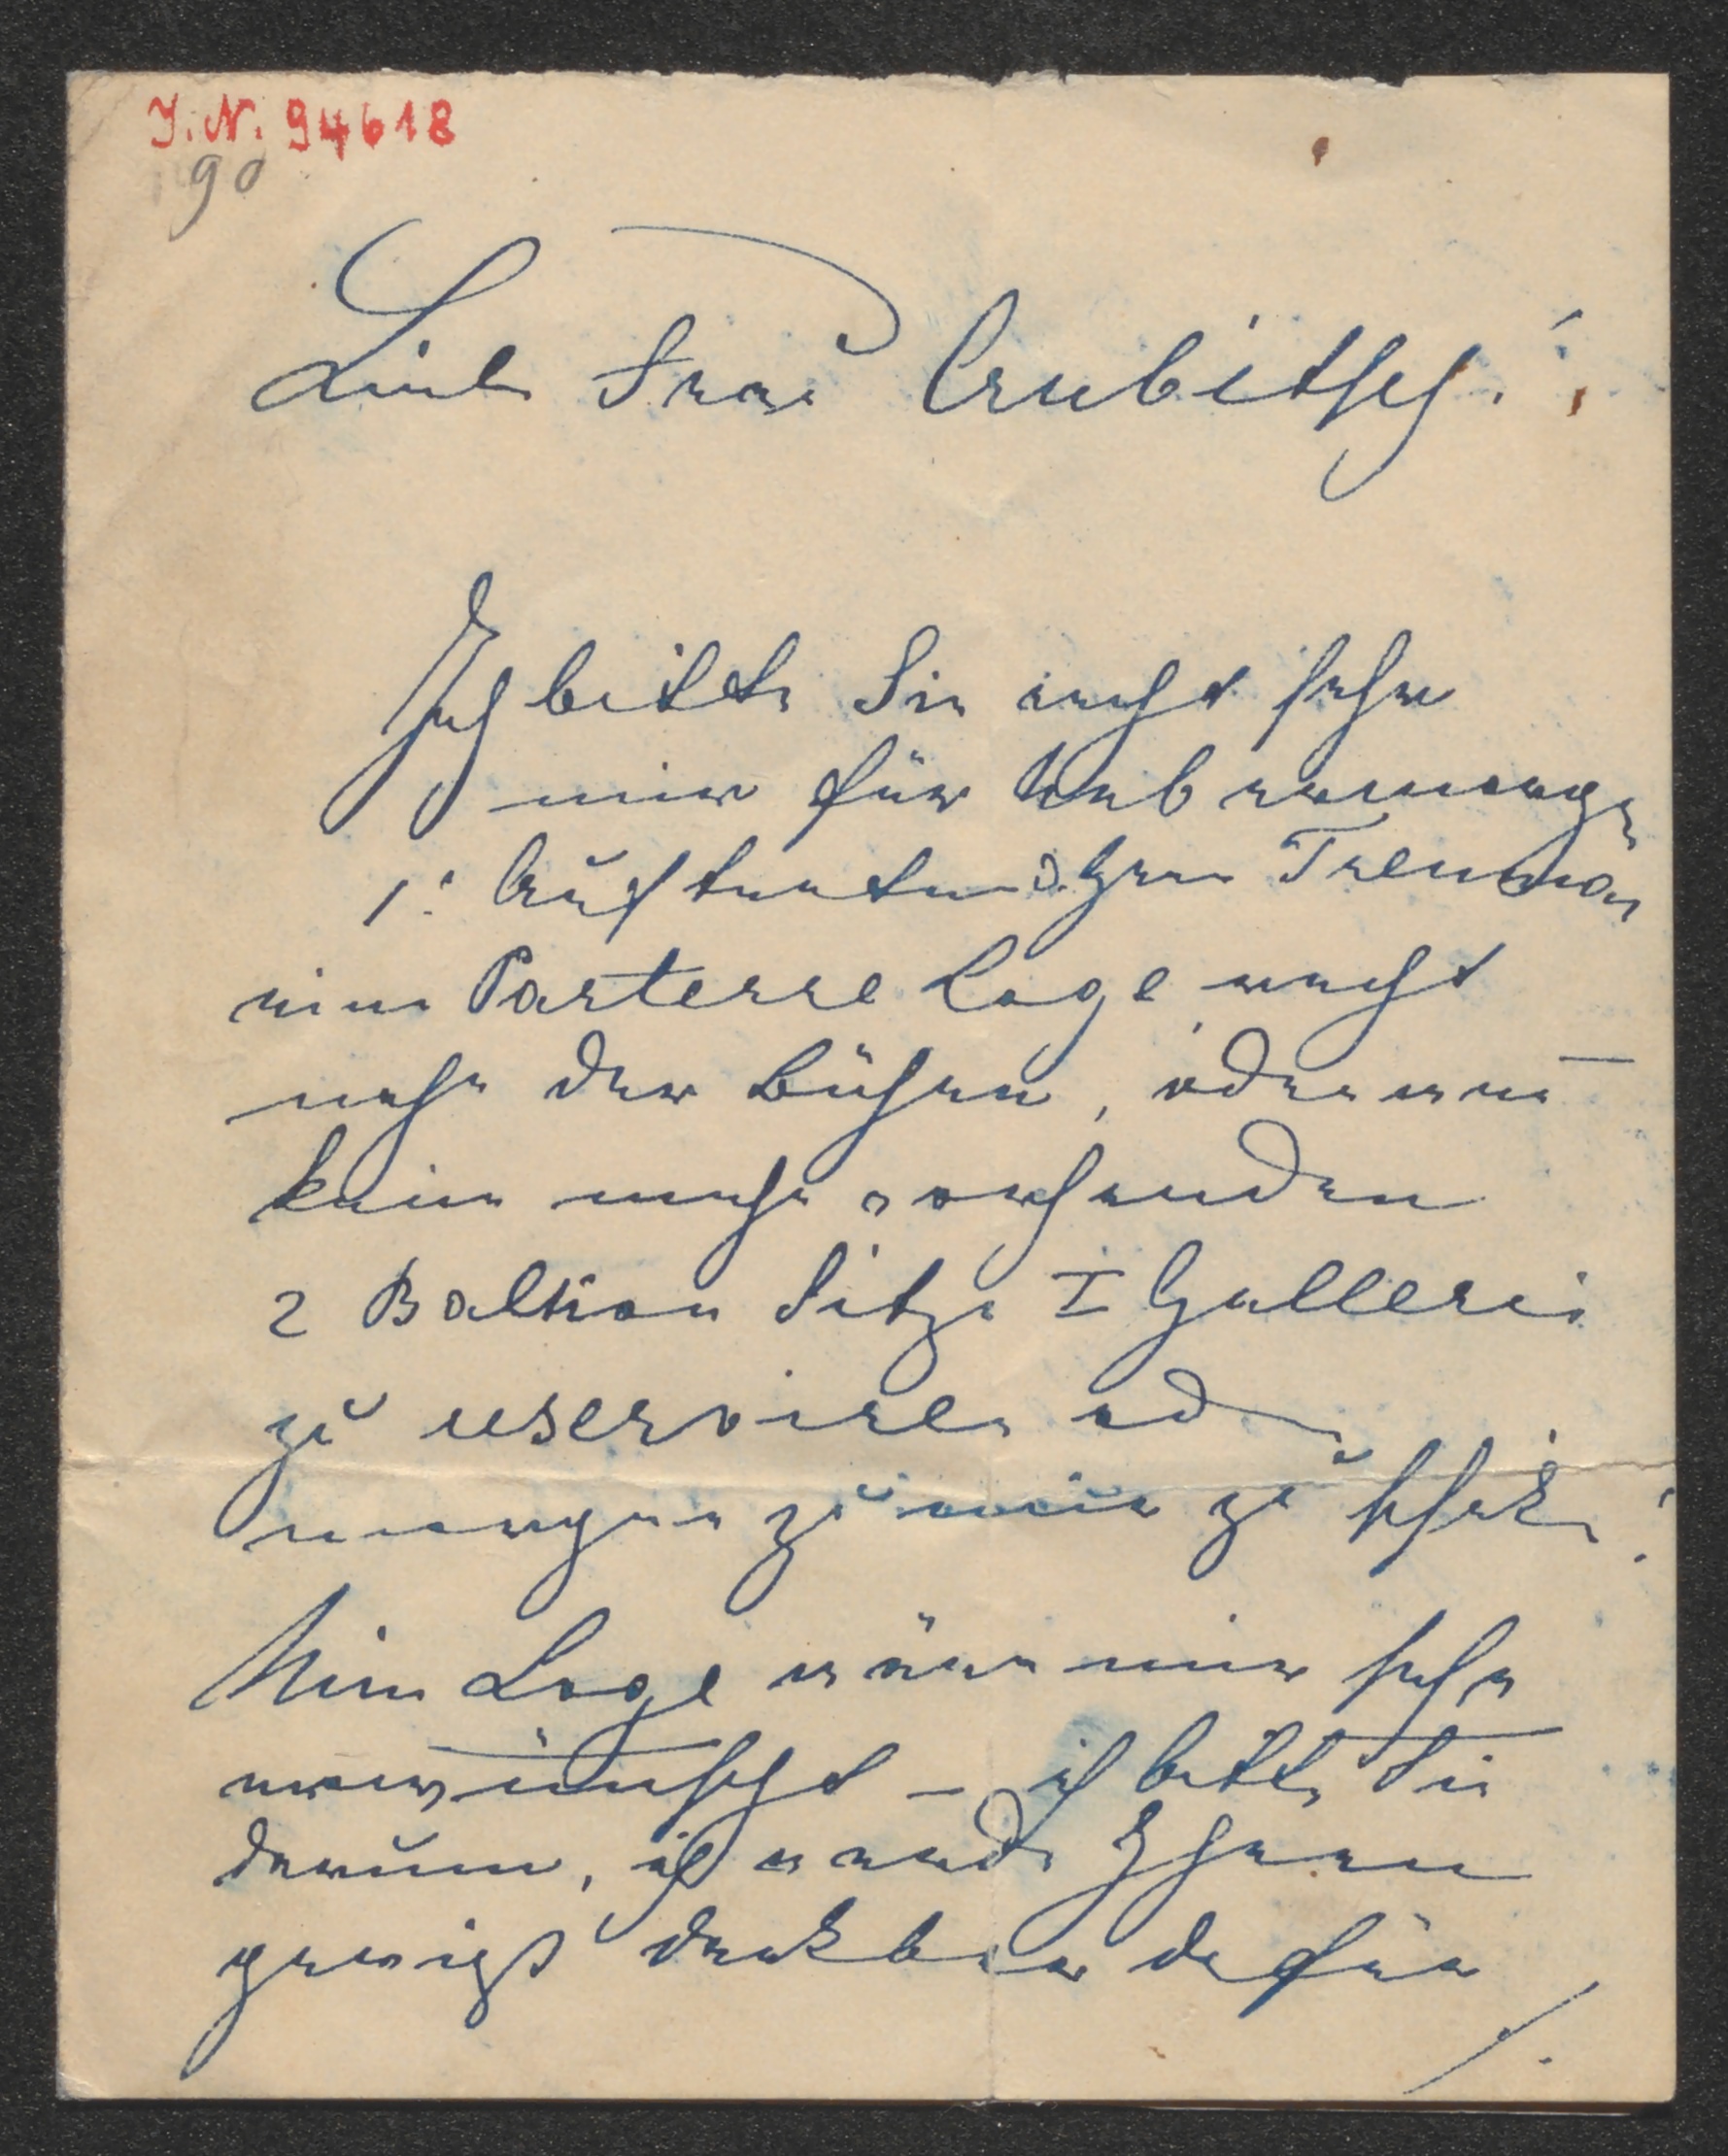 J. N. 94618
90
Liebe Frau Crubitsch!
Ich bitte Sie recht sehr
mir für Uebermorgen
1. Auftreten d. Herrn
eine Parterre Loge recht
nahe der Bühne, oder wenn
keine mehr vorhanden
2 Balkon Sitze I Gallerie
zu reserviren oder
morgen zu mir zu schicken!
Eine Loge wäre mir sehr
erwünscht – ich bitte Sie
darum, ich werde Ihnen
gewiß dankbar dafür
/.